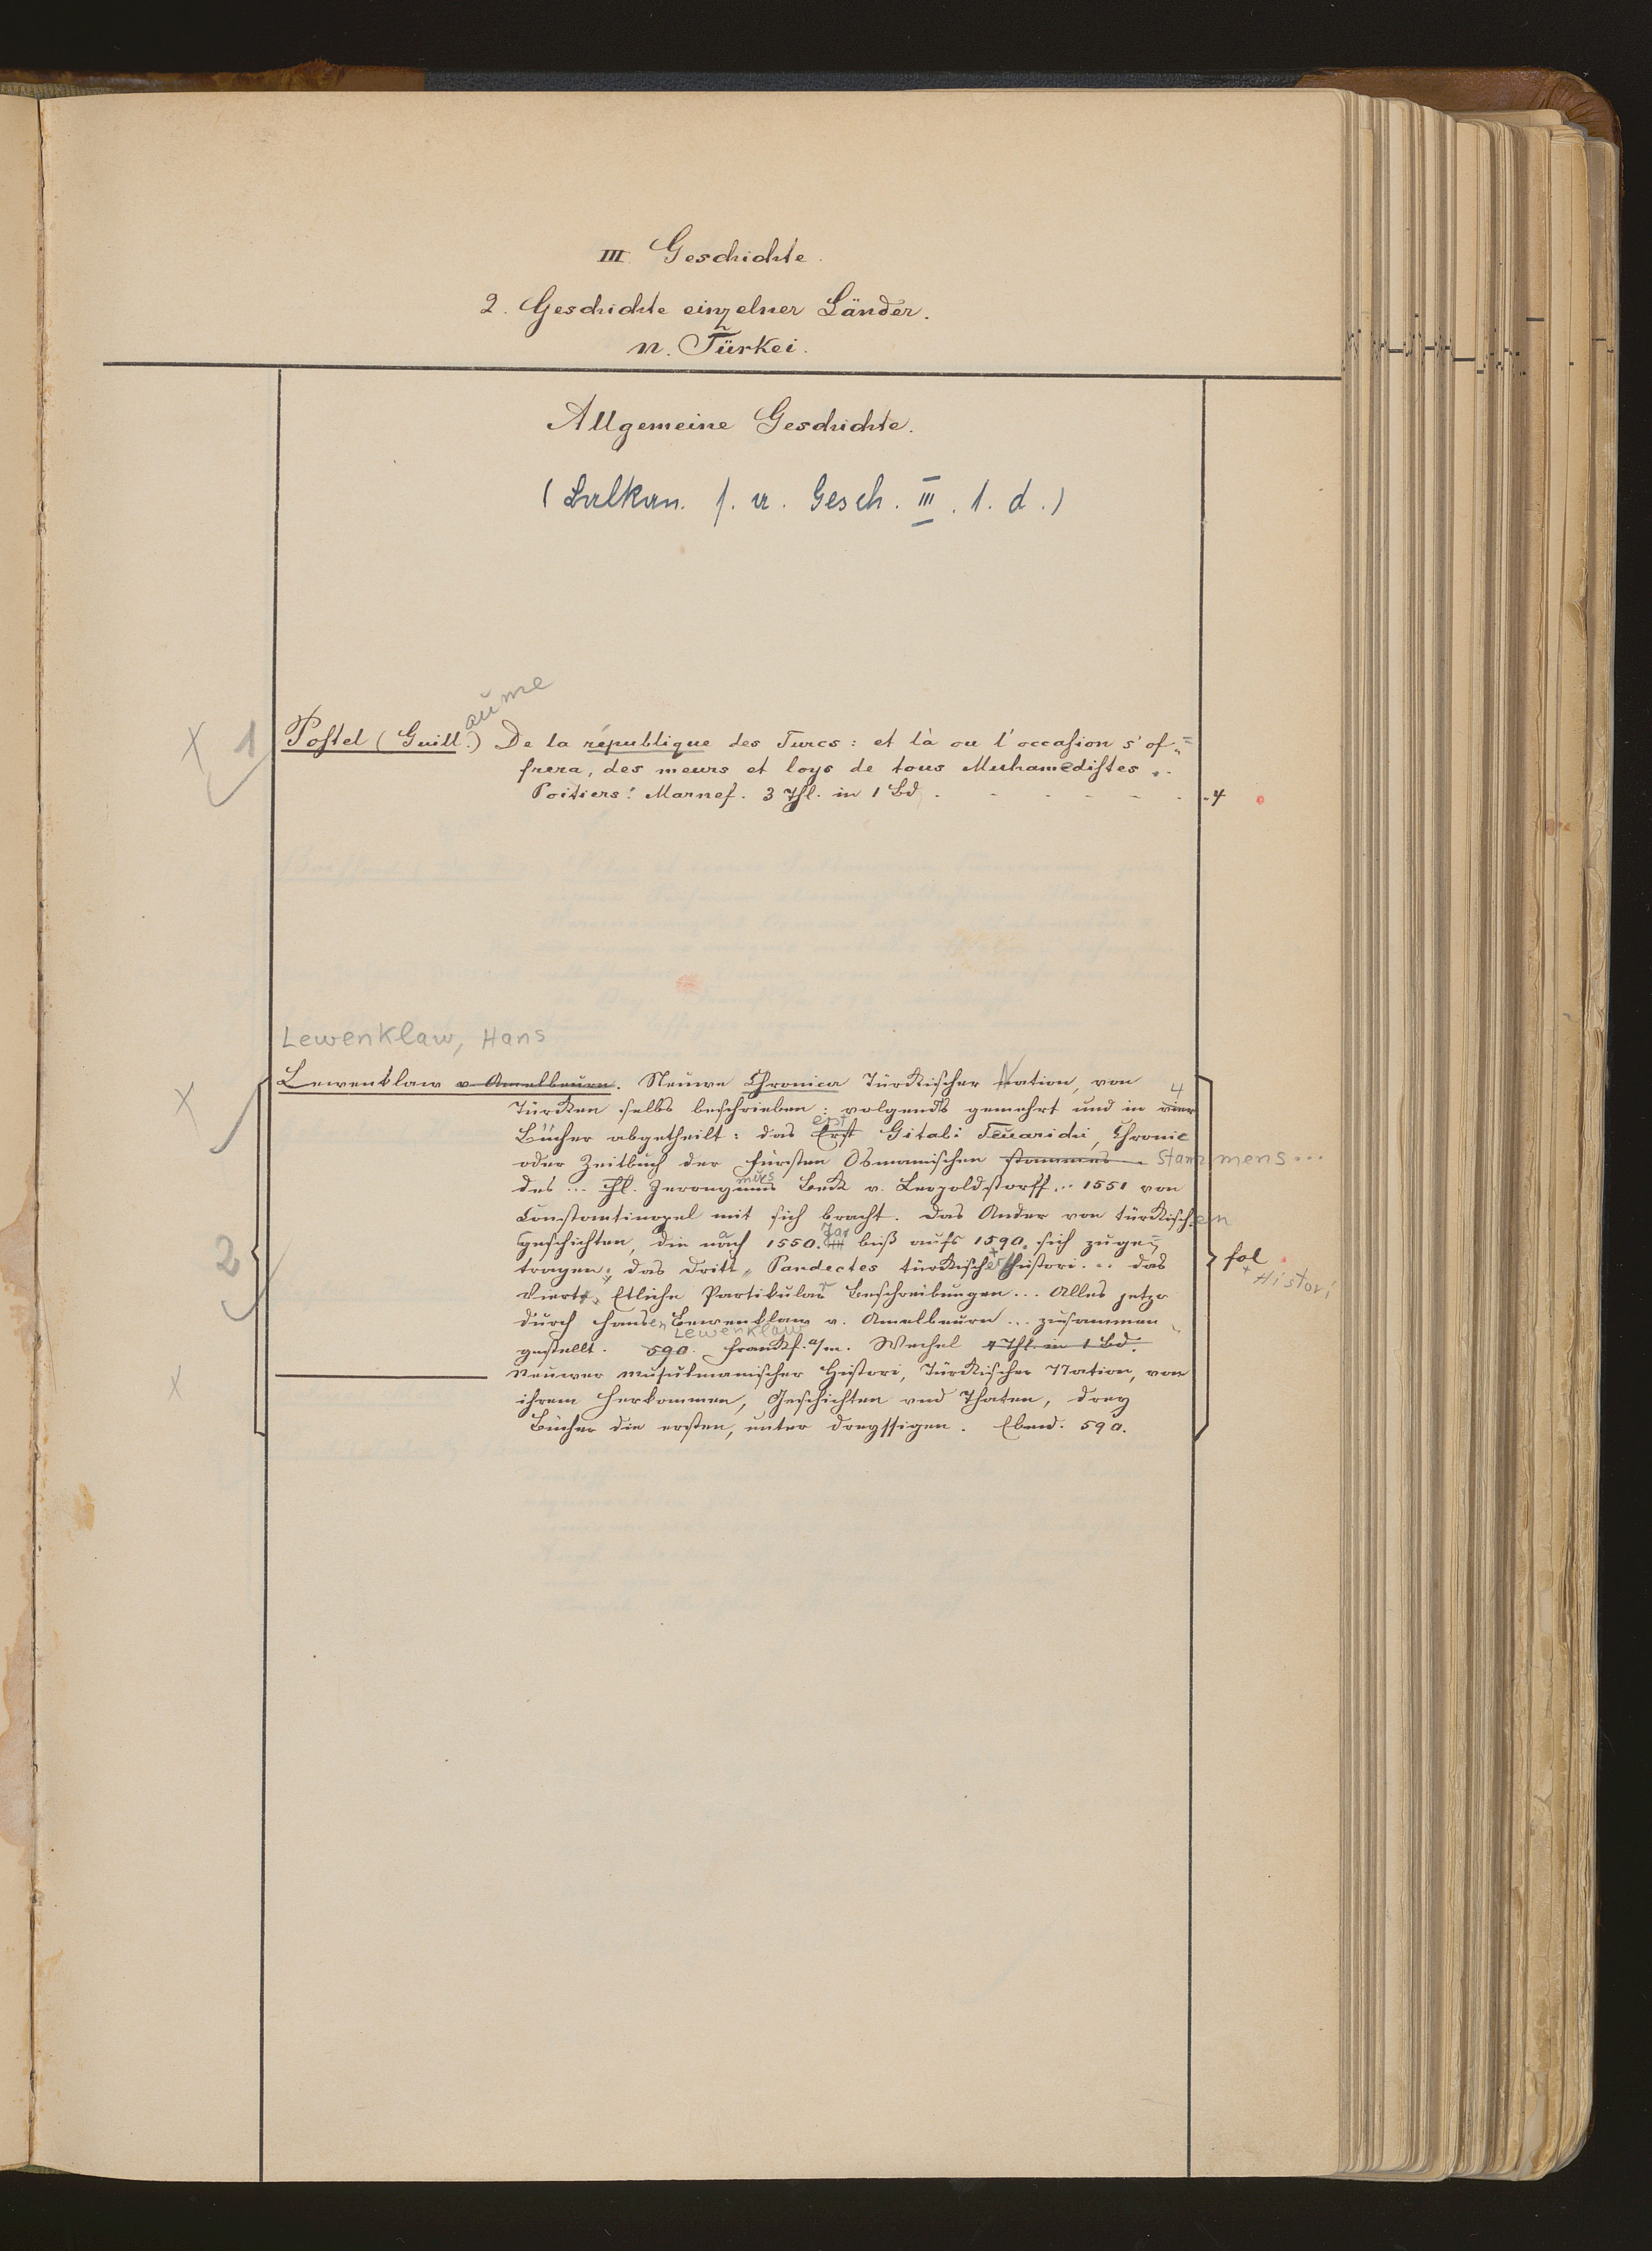 III Geschichte.
2. Geschichte einzelner Länder.
n. Türkei.
Allgemeine Geschichte.
(Balkan. s. a. Gesch. III. 1. d.)
aume
X 1 Postel (Guill.) De la république des Turcs: et là ou l'occasion s'of=
frera, des meurs et loys de tous Muhamedistes ..
Poitiers: Marnef. 3 Thl. in 1 Bd. - - - - - 4
Lewenklaw, Hans
X Lewenklaw v. Amelbeurn. Neuwe Chronica Türckischer Nation, von
Türcken selbs beschrieben: volgends gemehrt und in vier 4
Bücher abgetheilt: das Erst erst Gitabi Teuarichi, Chronic
oder Zeitbuch der Fürsten Osmanischen Stammes Stammens...
des ... Hieronymus mus Beck v. Leopoldstorff ... 1551 von
Constantinopel mit sich bracht. Das Ander von türckischen
2 Geschichten, die nach 1550. Jar biß aufs 1590. sich zuge=
tragen: das Dritt, Pandectes türckischer Histori ... das fol
+ Histori
Vierte, Etliche Particular Beschreibungen ... Alles jetzo
durch Hansen Lewenklaw v. Amelbeurn ... zusammen
Lewenklaw
gestellt. 590. Franckf. a/m. Wechel 4 Thl. in 1 Bd.
X Neuwer musulmanischer Histori, Türckischer Nation, von
ihrem Herkommen, Geschichten vnd Thaten, drey
Bücher die ersten, unter dreyssigen. Ebend. 590.